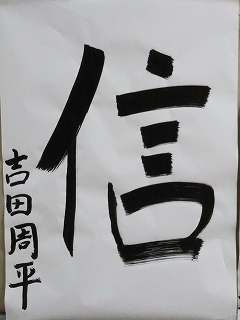 信
吉田周平